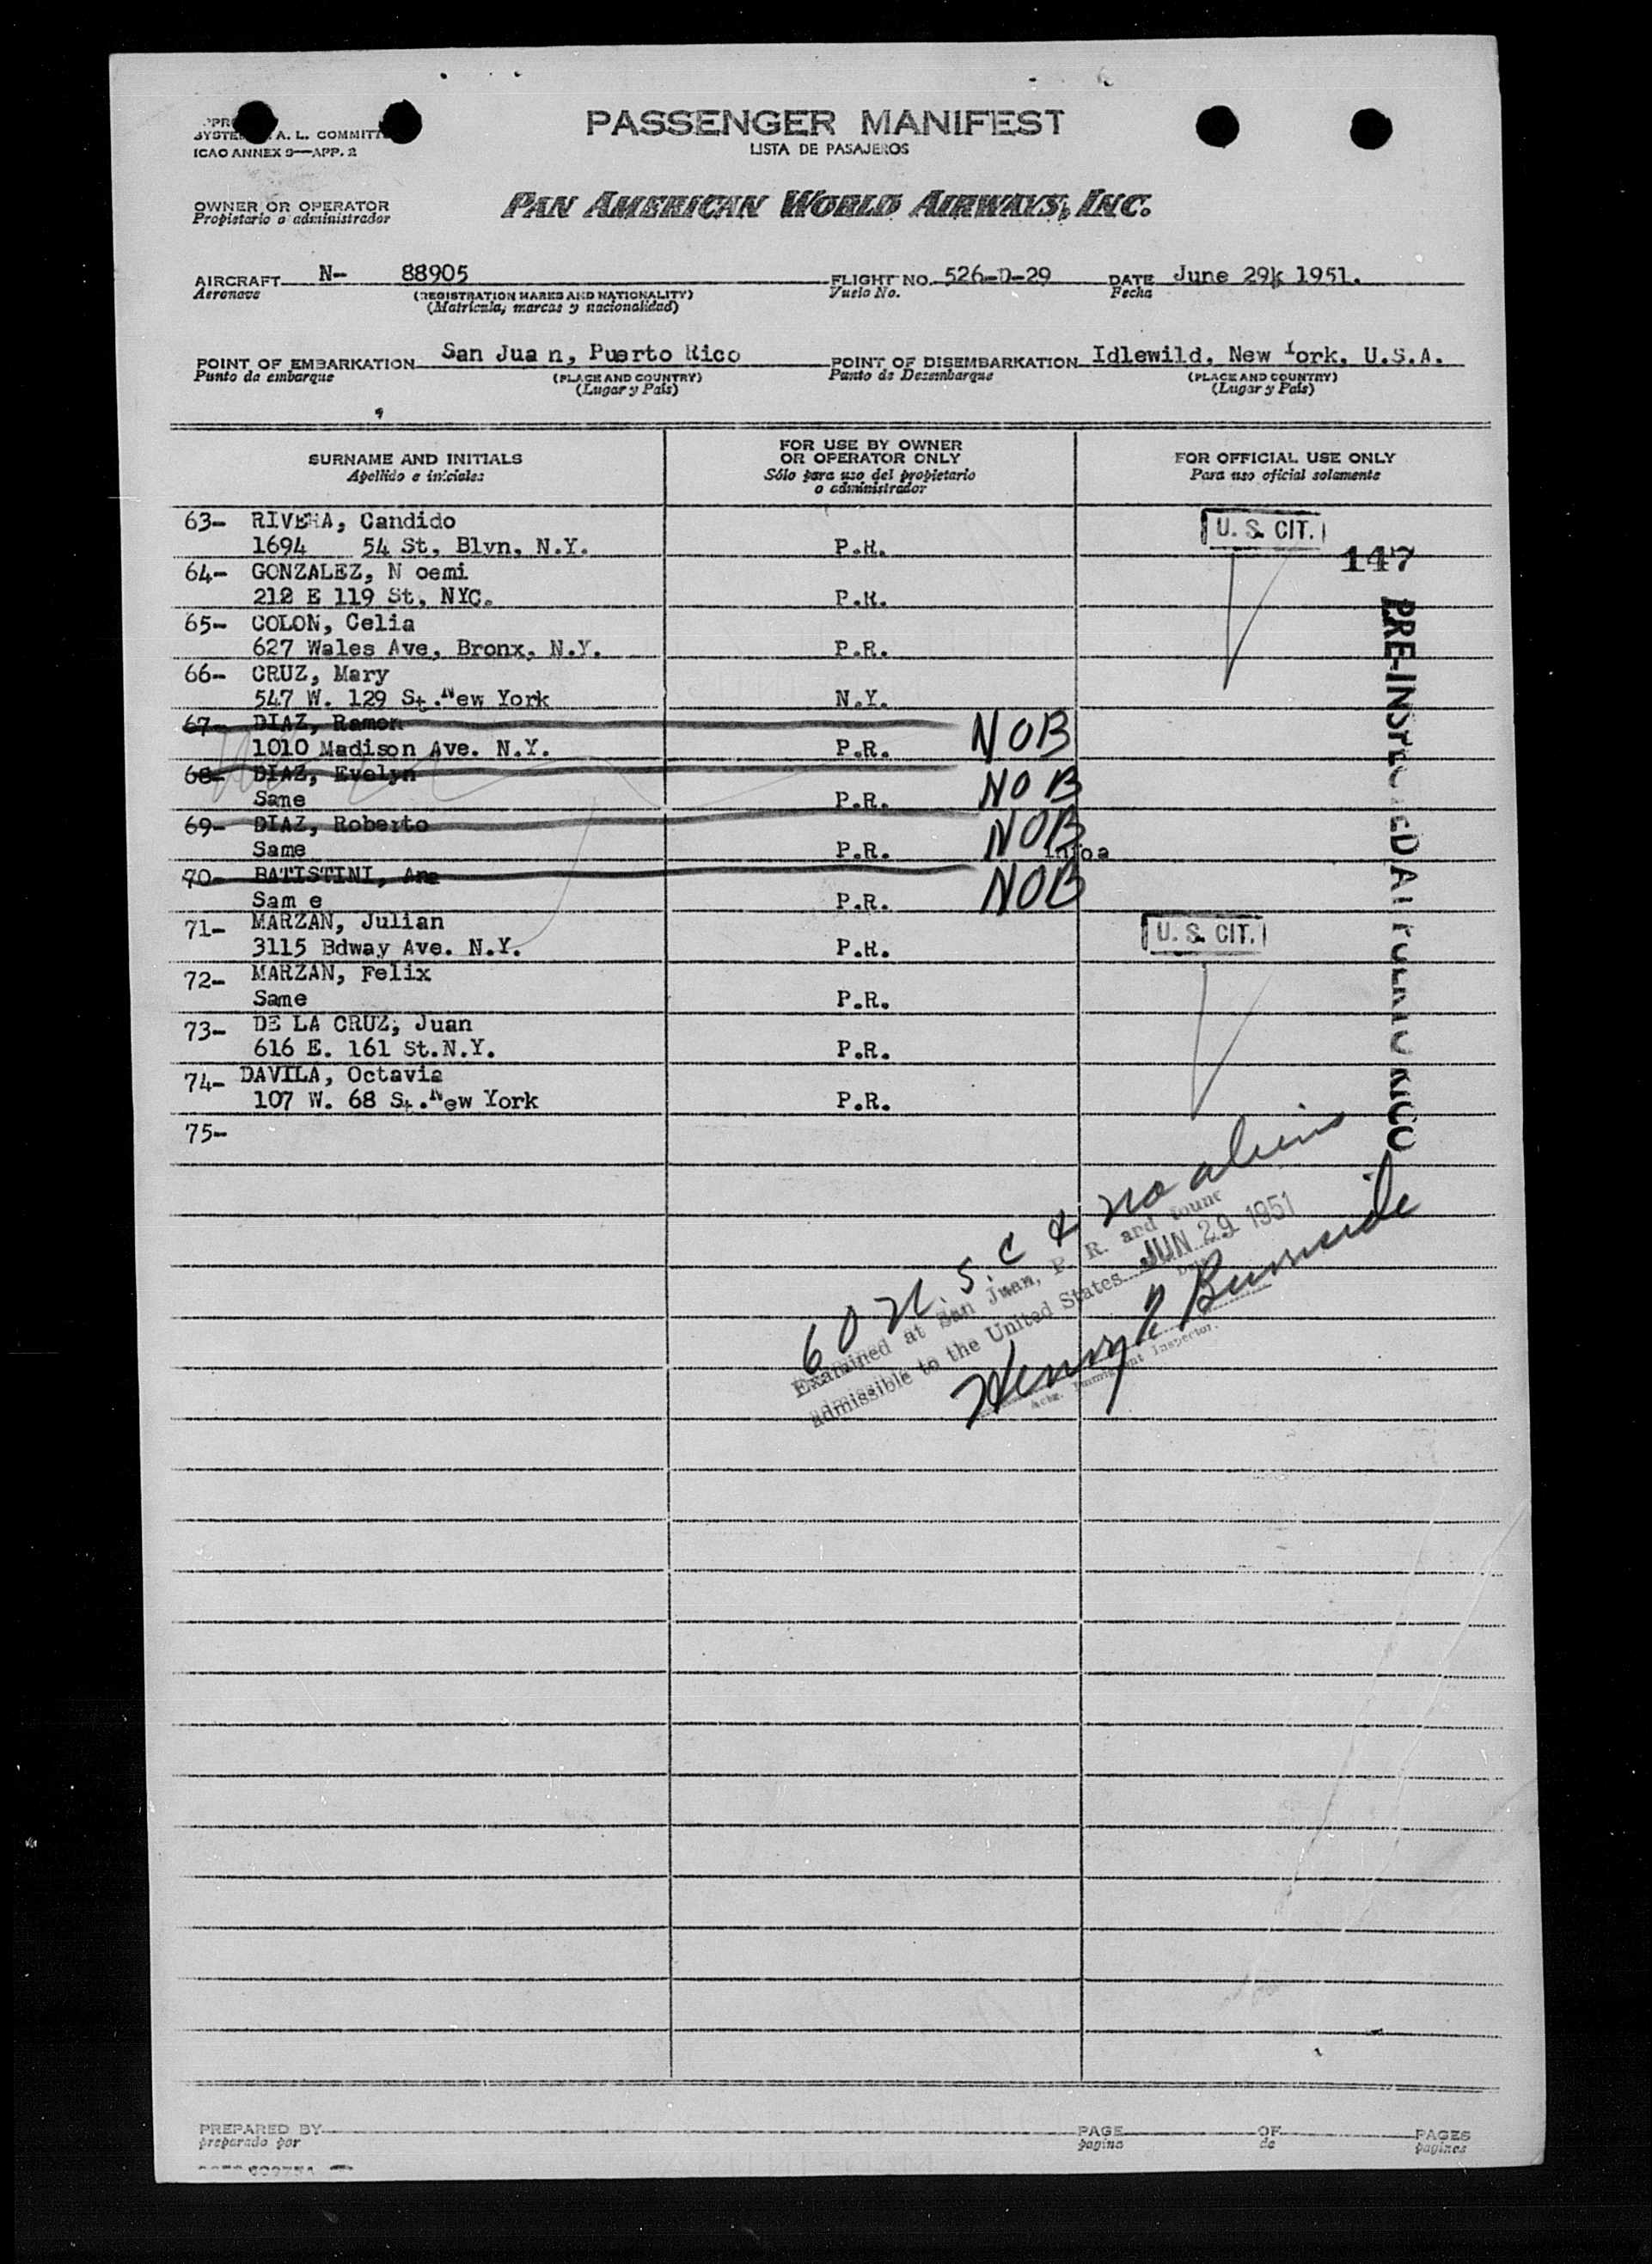 PASSENGER MANIFEST
LISTA DE PASAJEROS
A. L. COMMITT
ICAO ANNEX 9—APP. 2
OWNER OR OPERATOR
Propietario o administrador
PAN AMERICAN WORLD AIRWAYS, INC.
AIRCRAFT N- 88905 FLIGHT NO. 526-D-29 DATE June 29, 1951.
Aeronave (REGISTRATION MARKS AND NATIONALITY) Vuelo No. Fecha
(Matrícula, marcas y nacionalidad)
POINT OF EMBARKATION San Jua n, Puerto Rico POINT OF DISEMBARKATION Idlewild, New York, U.S.A.
Punto de embarque (PLACE AND COUNTRY) Punto de Desembarque (PLACE AND COUNTRY)
(Lugar y País) (Lugar y País)
SURNAME AND INITIALS FOR USE BY OWNER OR OPERATOR ONLY FOR OFFICIAL USE ONLY
Apellido e iniciales Sólo para uso del propietario o administrador Para uso oficial solamente
63- RIVERA, Candido U. S. CIT.
1694 54 St, Blvn. N.Y. P.R. 147
64- GONZALEZ, N oemi
212 E 119 St, NYC. P.R.
65- COLON, Celia
627 Wales Ave, Bronx, N.Y. P.R.
66- CRUZ, Mary
547 W. 129 St. New York N.Y.
67- DIAZ, Ramon NOB
1010 Madison Ave. N.Y. P.R.
68- DIAZ, Evelyn NOB
Same P.R.
69- DIAZ, Roberto NOB
Same P.R.
70- BATISTINI, Ana NOB
Sam e P.R.
71- MARZAN, Julian U. S. CIT.
3115 Bdway Ave. N.Y. P.R.
72- MARZAN, Felix
Same P.R.
73- DE LA CRUZ, Juan
616 E. 161 St.N.Y. P.R.
74- DAVILA, Octavia
107 W. 68 St. New York P.R.
75-
PRE-INSPECTED AT PUERTO RICO
60 U. S. C & no aliens
Examined at San Juan, P. R. and found
admissible to the United States JUN 29 1951
Date
Henry Burnside
Actg. Immigrant Inspector.
PREPARED BY PAGE OF PAGES
preparado por pagina de paginas